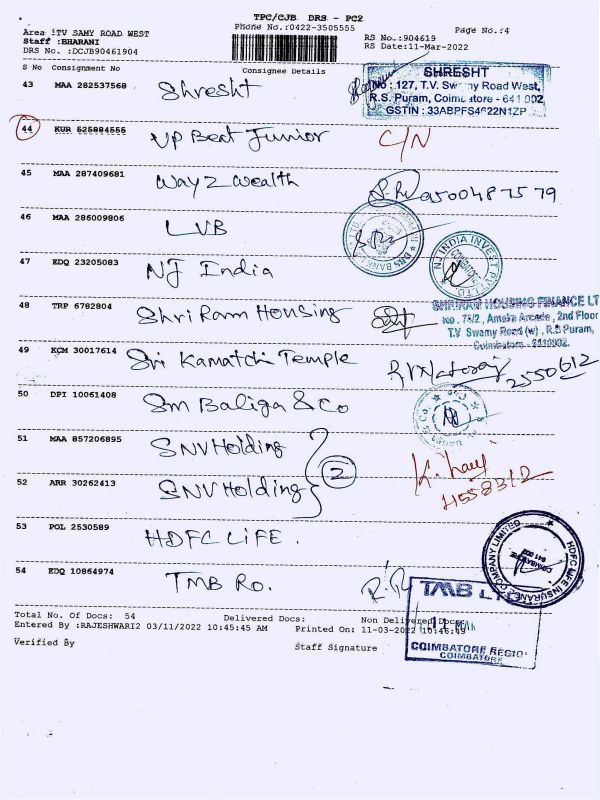 TPC/CJB DRS - PC2
Phone No.:0422-3505555
Area :TV SAMY ROAD WEST
Staff :BHARANI
DRS No. :DCJB90461904
RS No.:904619
RS Date:11-Mar-2022
Page No.:4
S No Consignment No Consignee Details
43 MAA 282537568 Shresht
SHRESHT
No : 127, T.V. Swamy Road West,
R.S. Puram, Coimbatore - 641 002
GSTIN : 33ABPFS4622N1ZP
44 KUR 525884555 Up Beat Junior C/N
45 MAA 287409681 Way 2 Wealth 9500487579
46 MAA 286009806 LVB
DBS BANK
47 EDQ 23205083 NJ India
NJ INDIA INVEST
48 TRP 6782804 Shri Ram Housing
SHRIRAM HOUSING FINANCE LT
No. 74/2, Ameka Arcade, 2nd Floor
T.V Swamy Road (w), R.S Puram,
Coimbatore
49 KCM 30017614 Sri Kamatchi Temple 2550612
50 DPI 10061408 Sm Baliga & Co
51 MAA 857206895 SNV Holding
2
52 ARR 30262413 SNV Holding
4558312
53 POL 2530589 HDFC LIFE.
HDFC LIFE INSURANCE COMPANY LIMITED
COIMBATORE
641 002
54 EDQ 10864974 TMB Ro.
TMB LTD
COIMBATORE REGIO
COIMBATORE
Total No. Of Docs: 54 Delivered Docs: Non Delivered Docs:
Entered By :RAJESHWARI2 03/11/2022 10:45:45 AM Printed On: 11-03-2022 10:46:49
Verified By Staff Signature